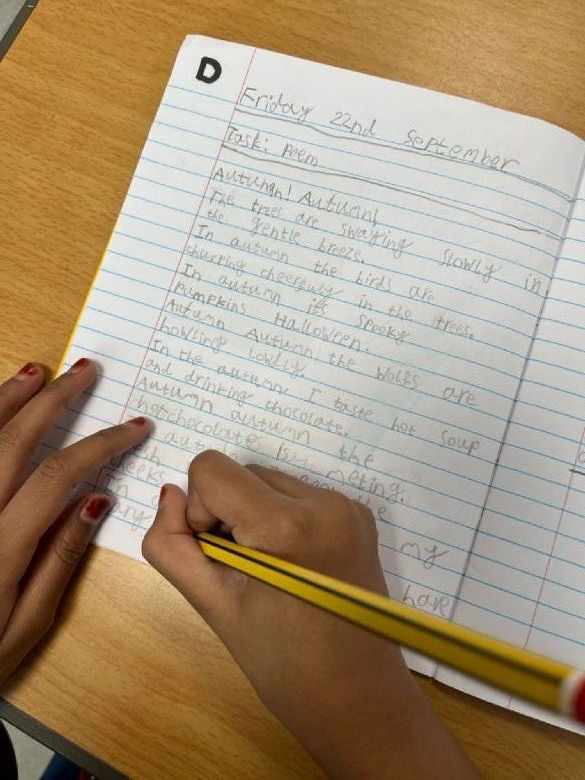 D
Friday 22nd September
Task: Poem
Autumn! Autumn!
The trees are swaying slowly in
the gentle breeze.
In autumn the birds are
churping cheerfuly in the trees.
In autumn its spooky
Pumpkins Halloween.
Autumn Autumn the Wolfs are
howling lowly
In the autumn I taste hot soup
and drinking chocolate.
Autumn autumn the
hotchocolates is meting.
the
cheeks my
In have
any